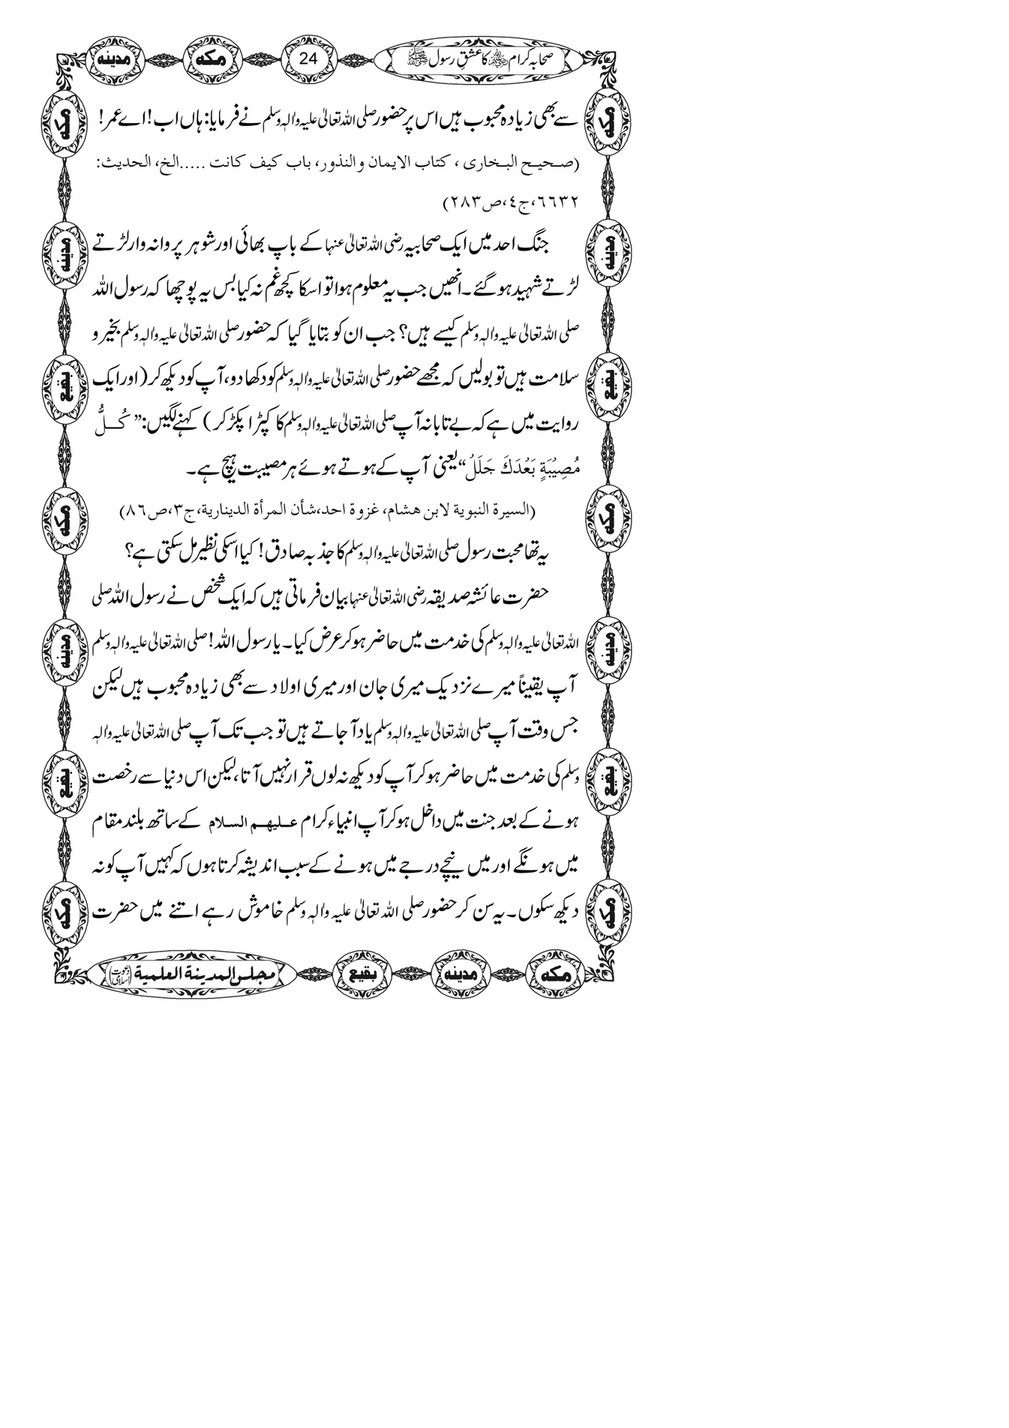 صحابہ کرام ﷺ کا عشق رسول ﷺ 24 مکہ مدینہ
سے بھی زیادہ محبوب ہیں اس پر حضور صلی اللہ تعالیٰ علیہ والہٖ وسلم نے فرمایا: ہاں اب! اے عمر!
(صحیح البخاری ، کتاب الایمان والنذور، باب کیف کانت .....الخ، الحدیث:
٦٦٣٢،ج٤،ص٢٨٣)
جنگ احد میں ایک صحابیہ رضی اللہ تعالیٰ عنہا کے باپ بھائی اور شوہر پروانہ وار لڑتے
لڑتے شہید ہو گئے۔ انھیں جب یہ معلوم ہوا تو اسکا کچھ غم نہ کیا بس یہ پوچھا کہ رسول اللہ
صلی اللہ تعالیٰ علیہ والہٖ وسلم کیسے ہیں؟ جب ان کو بتایا گیا کہ حضور صلی اللہ تعالیٰ علیہ والہٖ وسلم بخیر و
سلامت ہیں تو بولیں کہ مجھے حضور صلی اللہ تعالیٰ علیہ والہٖ وسلم کو دکھا دو، آپ کو دیکھ کر (اور ایک
روایت میں ہے کہ بے تابانہ آپ صلی اللہ تعالیٰ علیہ والہٖ وسلم کا کپڑا پکڑ کر) کہنے لگیں: ”کُلُّ
مُصِیْبَةٍ بَعْدَكَ جَلَلٌ“ یعنی آپ کے ہوتے ہوئے ہر مصیبت ہیچ ہے۔
(السیرة النبویة لابن هشام، غزوة احد،شأن المرأة الدیناریة،ج٣،ص٨٦)
یہ تھا محبت رسول صلی اللہ تعالیٰ علیہ والہٖ وسلم کا جذبہ صادق! کیا اسکی نظیر مل سکتی ہے؟
حضرت عائشہ صدیقہ رضی اللہ تعالیٰ عنہا بیان فرماتی ہیں کہ ایک شخص نے رسول اللہ صلی
اللہ تعالیٰ علیہ والہٖ وسلم کی خدمت میں حاضر ہو کر عرض کیا۔ یا رسول اللہ! صلی اللہ تعالیٰ علیہ والہٖ وسلم
آپ یقیناً میرے نزدیک میری جان اور میری اولاد سے بھی زیادہ محبوب ہیں لیکن
جس وقت آپ صلی اللہ تعالیٰ علیہ والہٖ وسلم یاد آ جاتے ہیں تو جب تک آپ صلی اللہ تعالیٰ علیہ والہٖ
وسلم کی خدمت میں حاضر ہو کر آپ کو دیکھ نہ لوں قرار نہیں آتا، لیکن اس دنیا سے رخصت
ہونے کے بعد جنت میں داخل ہو کر آپ انبیاء کرام علیہم السلام کے ساتھ بلند مقام
میں ہونگے اور میں نیچے درجے میں ہونے کے سبب اندیشہ کرتا ہوں کہ کہیں آپ کو نہ
دیکھ سکوں۔ یہ سن کر حضور صلی اللہ تعالیٰ علیہ والہٖ وسلم خاموش رہے اتنے میں حضرت
مکہ مدینہ بقیع مجلس المدینة العلمیة (دعوت اسلامی)
مکہ
مدینہ
بقیع
مکہ
مدینہ
بقیع
مکہ
مکہ
مدینہ
بقیع
مکہ
مدینہ
بقیع
مکہ